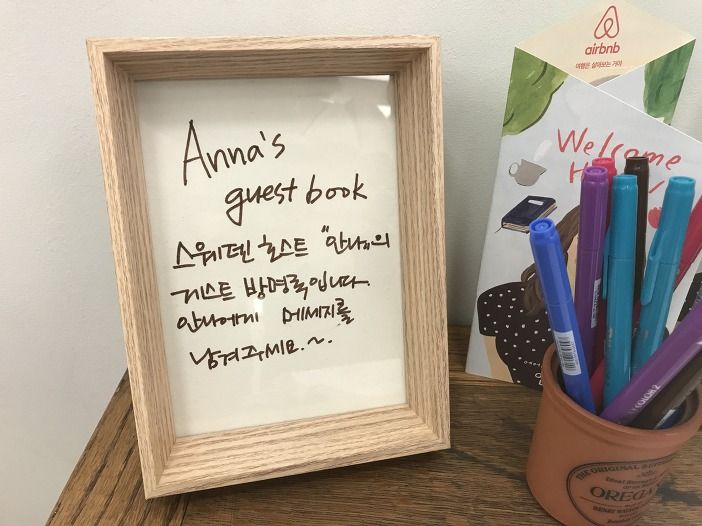 Anna's
guest book
스웨덴 호스트 "안나"의
게스트 방명록입니다.
안나에게 메세지를
남겨주세요.~.
airbnb
여행은 살아보는 거야
Welcome
THE ORIGINAL
OREGA